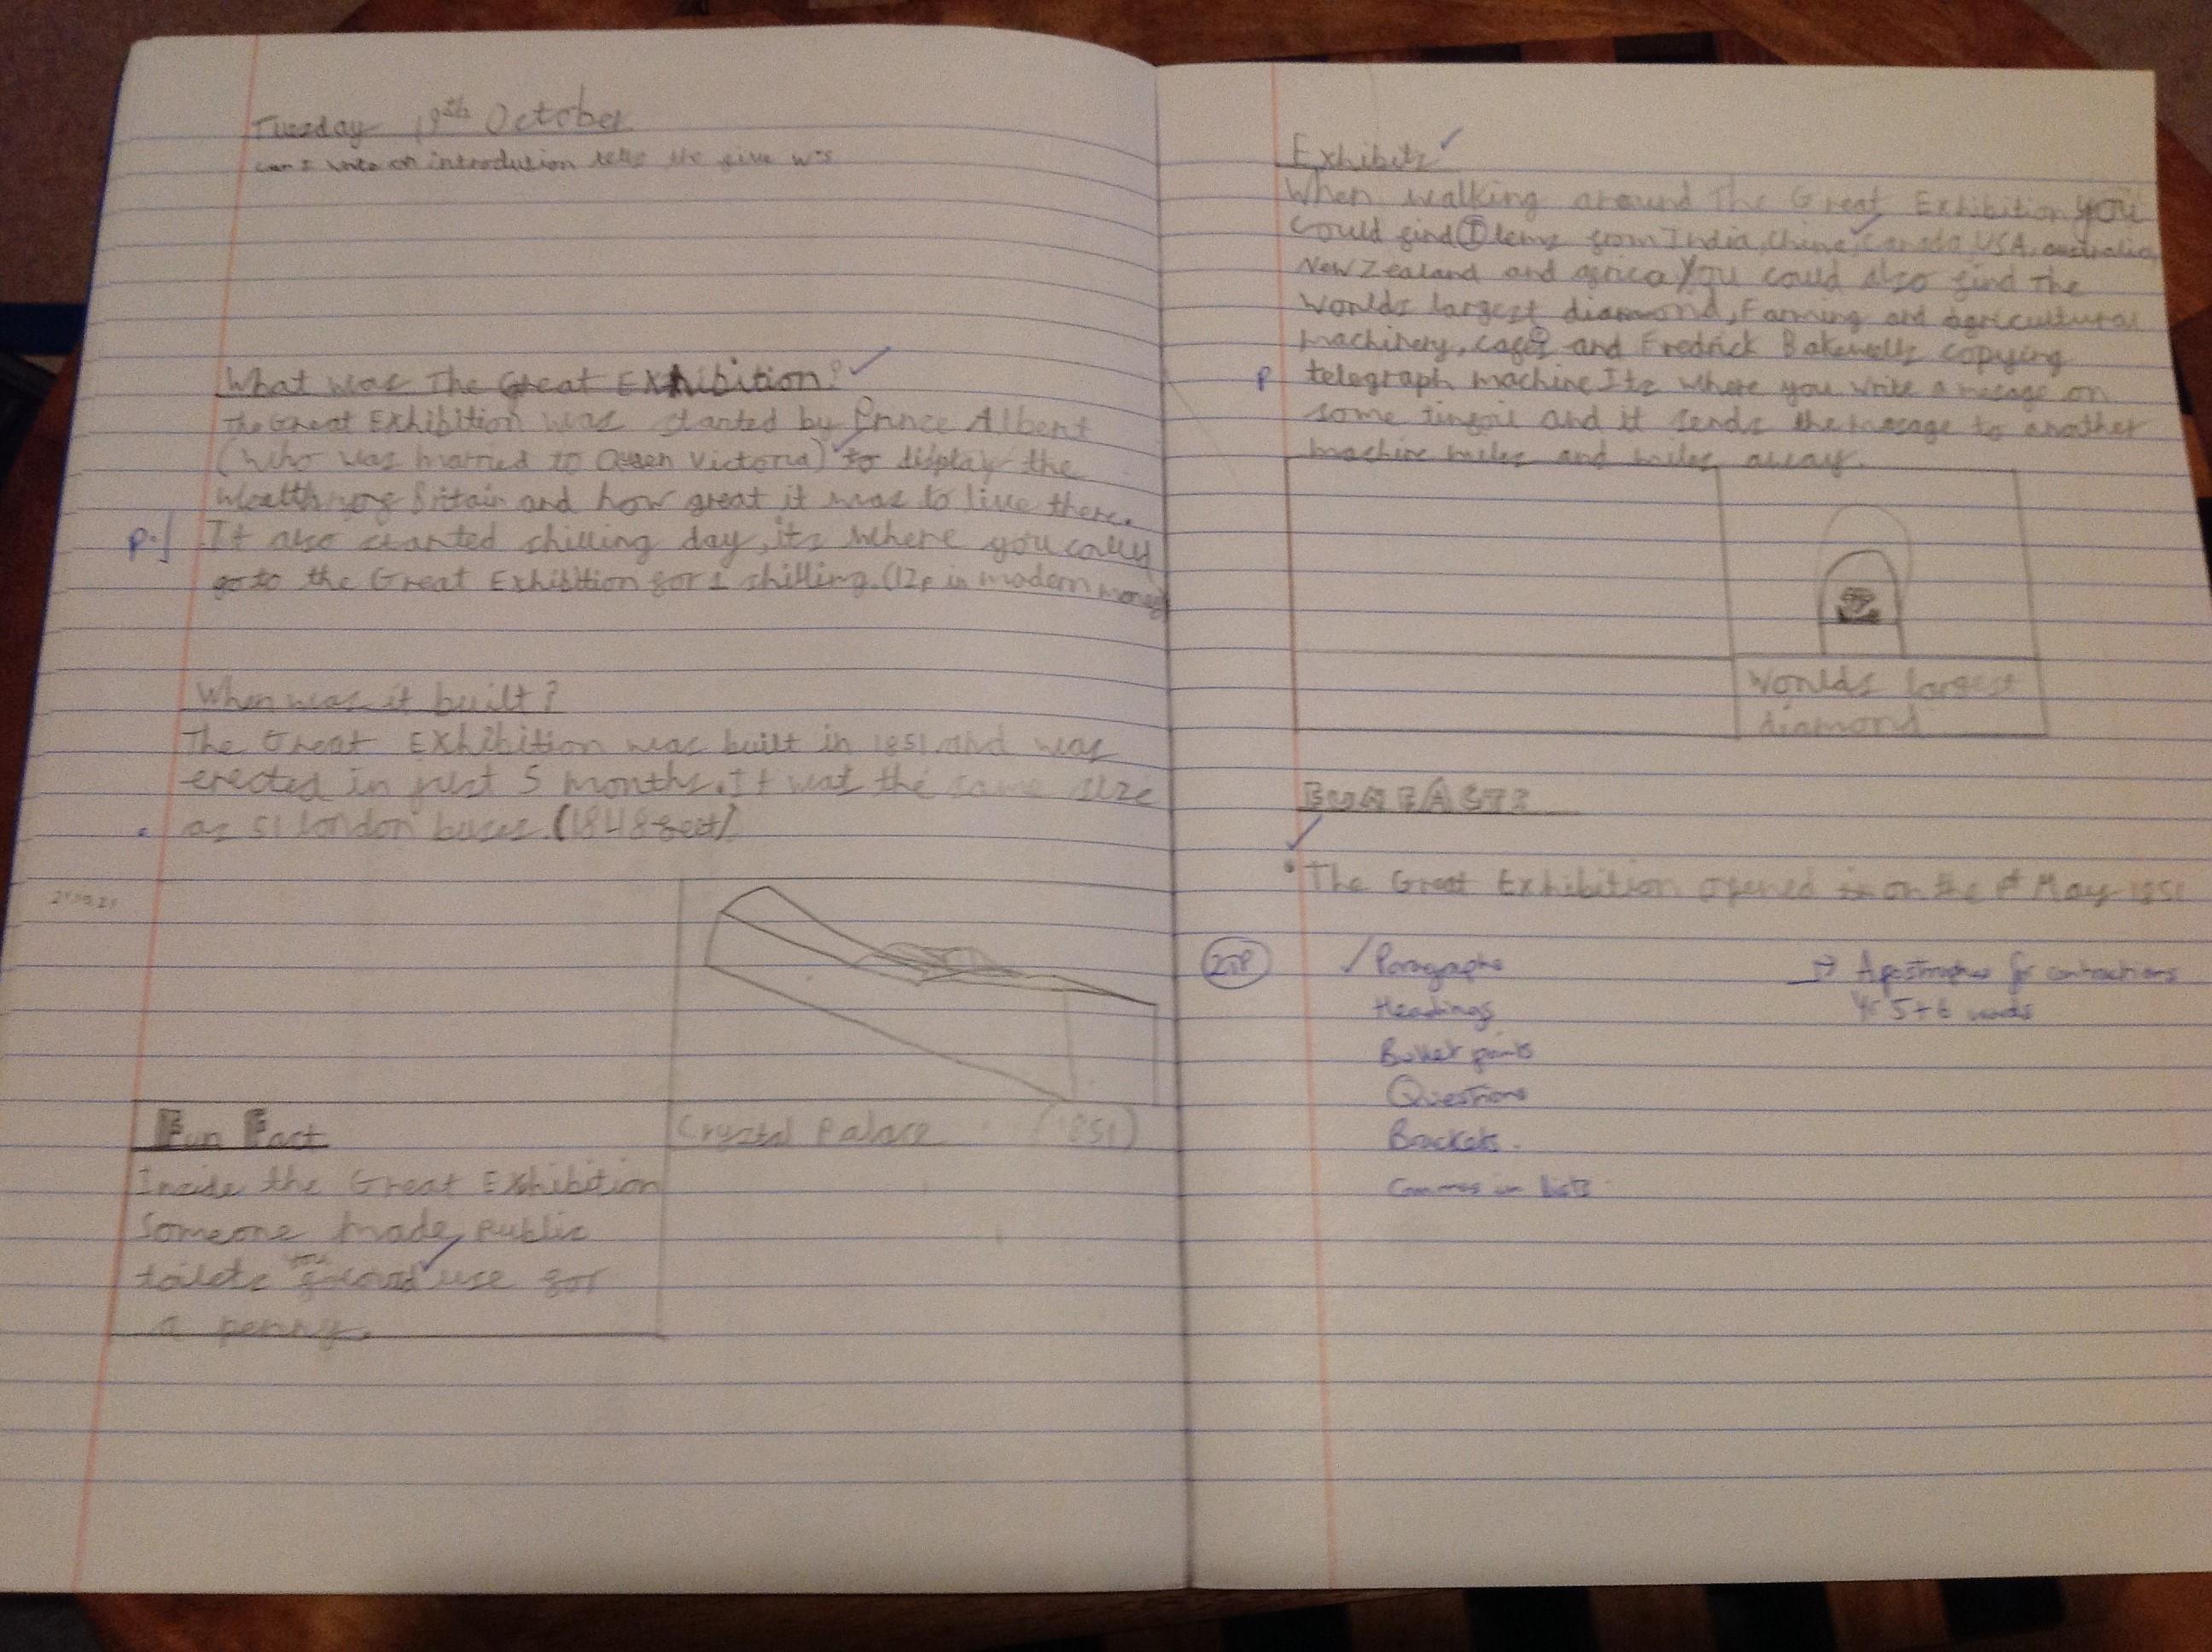 Tuesday 19th October
can I write an introdution tells the five w's
What was The Great Exhibition?
The Great Exhibition was started by Prince Albert
(who was married to Queen Victoria) to display the
wealth of Britain and how great it was to live there.
p. It also started shilling day, its where you could
go to the Great Exhibition for 1 shilling. (12p in modern money
When was it built?
The Great Exhibition was built in 1851 and was
erected in just 5 months. It was the same size
as 51 london buses. (1848 feet)
Crystal Palace (1851)
Fun Fact
Inside the Great Exhibition
Someone made public
toilets you could use for
a penny.
Exhibits
When walking around The Great Exhibition you
could find Items from India, China, Canada, USA, australia,
New Zealand and africa. You could also find the
worlds largest diamond, Farming and agricultural
machinery, cafes and Fredrick Bakewells copying
p telegraph machine Its where you write a mesage on
some tinfoil and it sends the message to another
machine miles and miles away.
Worlds largest
diamond
FUN FACTS
• The Great Exhibition opened on the 1st May 1851
✓ Paragraphs
Headings
Bullet points
Questions
Brackets.
Commas in lists
→ Apostrophes for contractions
Yr 5+6 words